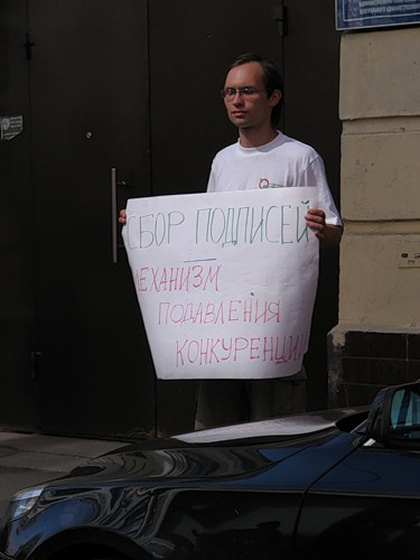 СБОР ПОДПИСЕЙ
МЕХАНИЗМ
ПОДАВЛЕНИЯ
КОНКУРЕНЦИИ